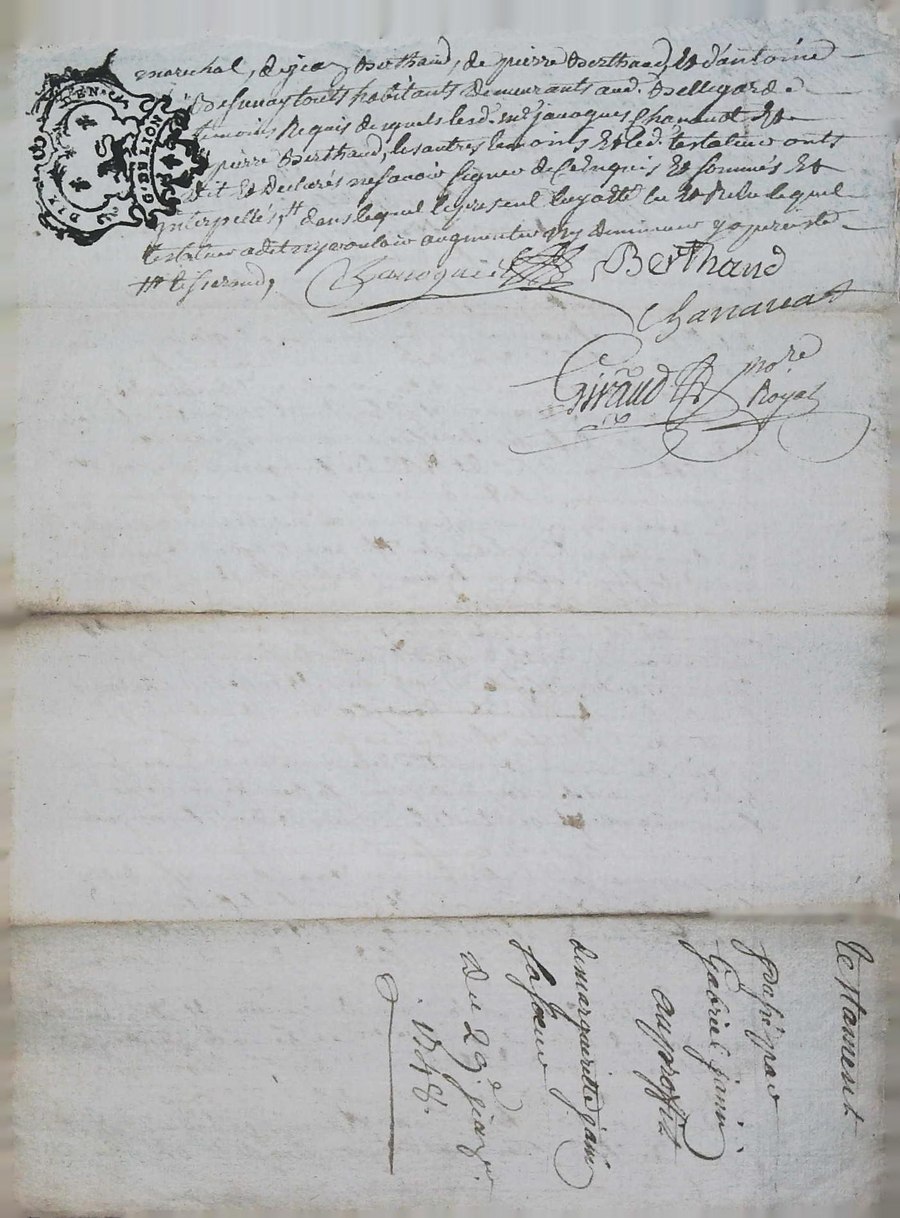 marechal, de jean Berthaud, de pierre Berthaud, et d'antoine
Besunay touts habitants demeurants aud. Bellegarde
temoins Requis desquels led. me jacques Chanauat et
pierre Berthaud, les autres temoins et led. testateur onts
dit et declarés ne sçavoir signer de ce enquis et sommés et
interpellés, dans lequel le present luy a été leu et Releu lequel
testateur a dit n'y vouloir augmenter ny diminuer y a persisté
Berthaud
Chanauat
Giraud nore
Royal
GEN
DIX
testament
Gabriel janin
au proffit
de margueritte janin
sa soeur
du 29 janv.
1748.